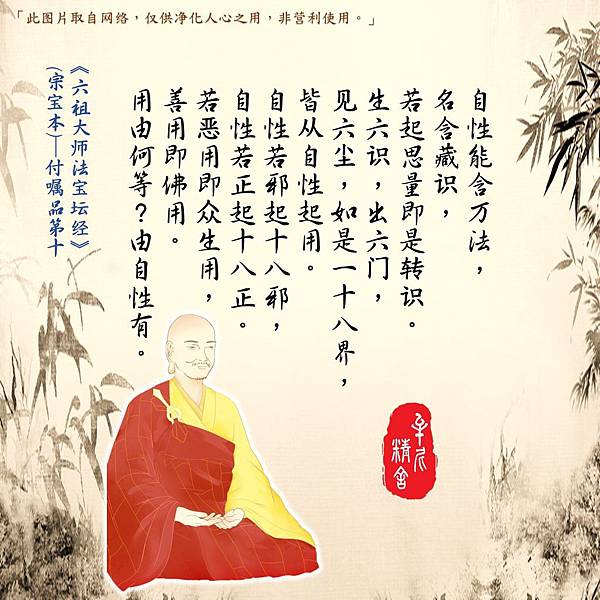 「此图片取自网络，仅供净化人心之用，非营利使用。」
自性能含万法，
名含藏识，
若起思量即是转识。
生六识，出六门，
见六尘，如是一十八界，
皆从自性起用。
自性若邪起十八邪，
自性若正起十八正。
若恶用即众生用，
善用即佛用。
用由何等？由自性有。
《六祖大师法宝坛经》
(宗宝本)—付嘱品第十
精舍